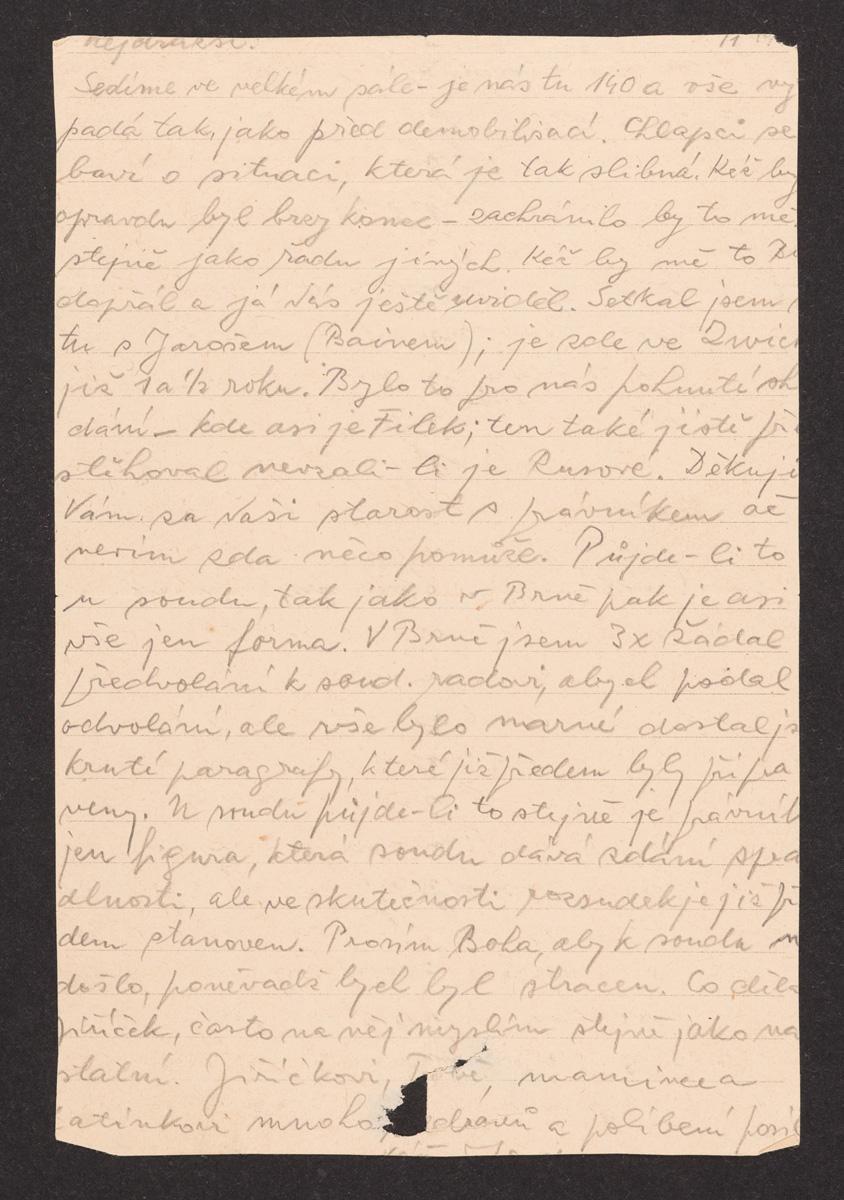 nejdražší. 11
Sedíme ve velkém sále - je nás tu 140 a vše vy
padá tak, jako před demobilisací. Chlapci se
baví o situaci, která je tak slibná. Kéž by
opravdu byl brzy konec - zachránilo by to mě
stejně jako řadu jiných. Kéž by mě to
dopřál a já Vás ještě uviděl. Setkal jsem
tu s Jarošem (Bainem); je zde ve Zwic
již 1 a 1/2 roku. Bylo to pro nás pohnuté sh
dání - kde asi je Filek; ten také jistě při
stěhoval nevzali-li je Rusové. Děkuji
Vám za Vaši starost s právníkem ač
nevím zda něco pomůže. Půjde-li to
u soudu, tak jako v Brně pak je asi
vše jen forma. V Brně jsem 3x žádal
předvolání k soud. radovi, abych podal
odvolání, ale vše bylo marné dostal js
kruté paragrafy, které již předem byly připra
veny. U soudu půjde-li to stejně je právník
jen figura, která soudu dává zdání spra
dlnosti, ale ve skutečnosti rozsudek je již př
dem stanoven. Prosím Boha, aby k soudu n
došlo, poněvadž bych byl ztracen. Co dělá
Jiříček, často na něj myslím stejně jako na
statní. Jiříčkovi, Tobě, mamince a
tatínkovi mnoho pozdravů a políbení posíl